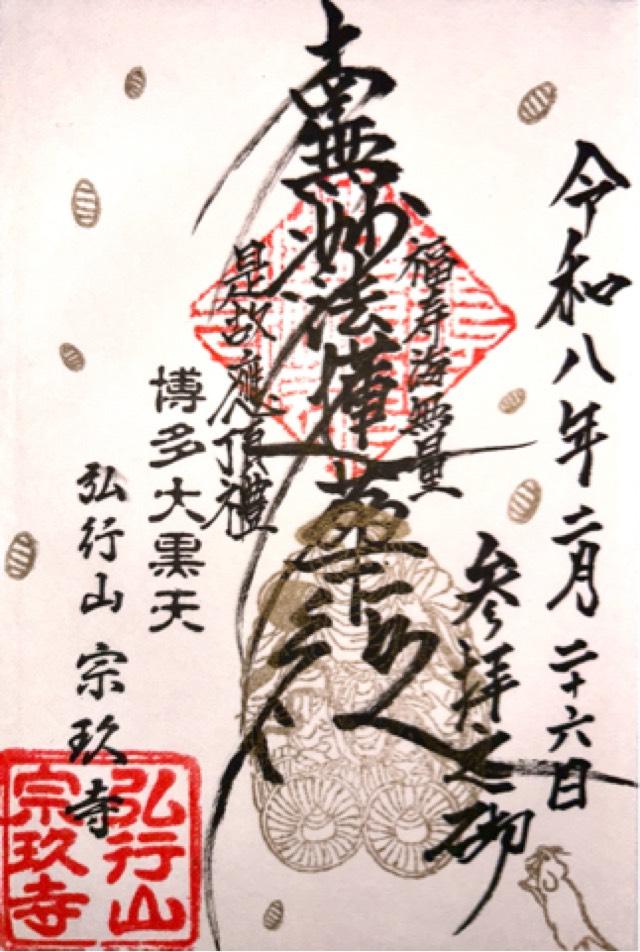 令和八年二月二十六日
参拝之砌
福寿海無量
南無妙法蓮華経
是故應頂禮
博多大黒天
弘行山 宗玖寺
弘行山
宗玖寺